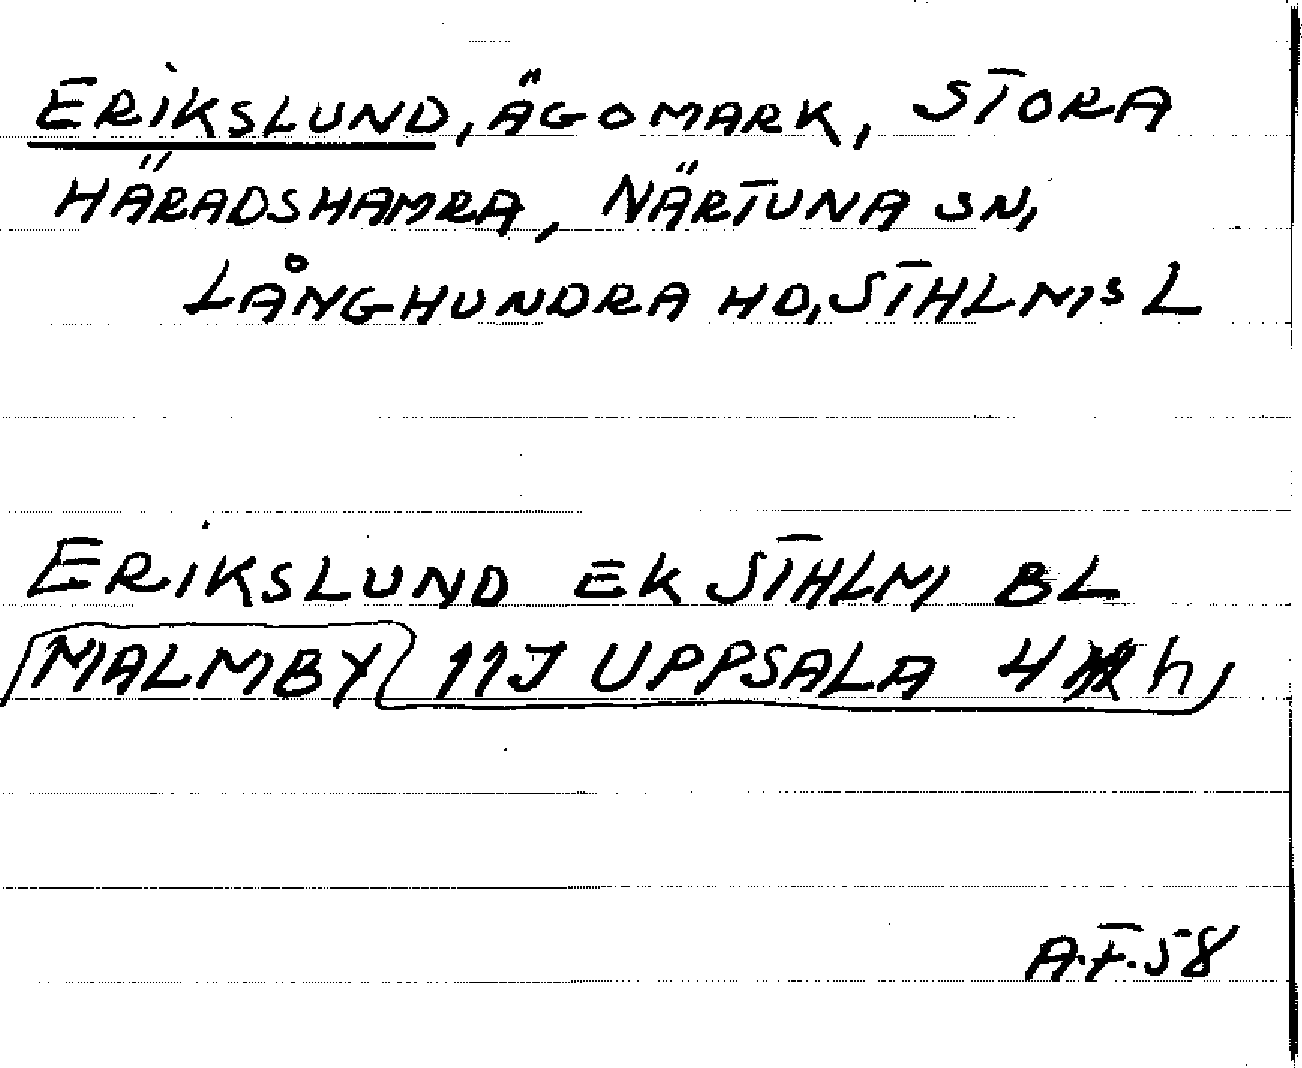 ERIKSLUND, ÄGOMARK, STORA
HÄRADSHAMRA, NÄRTUNA SN,
LÅNGHUNDRA HD, STHLMS L
ERIKSLUND EK STHLM BL
MALMBY 11J UPPSALA 4 h,
A.F.58